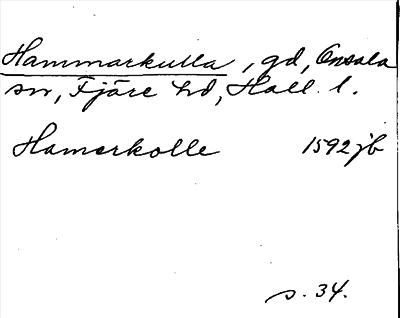 Hammarkulla, gd, Onsala
sn, Fjäre hd, Hall. l.
Hamerkolle 1592 jb
s. 34.